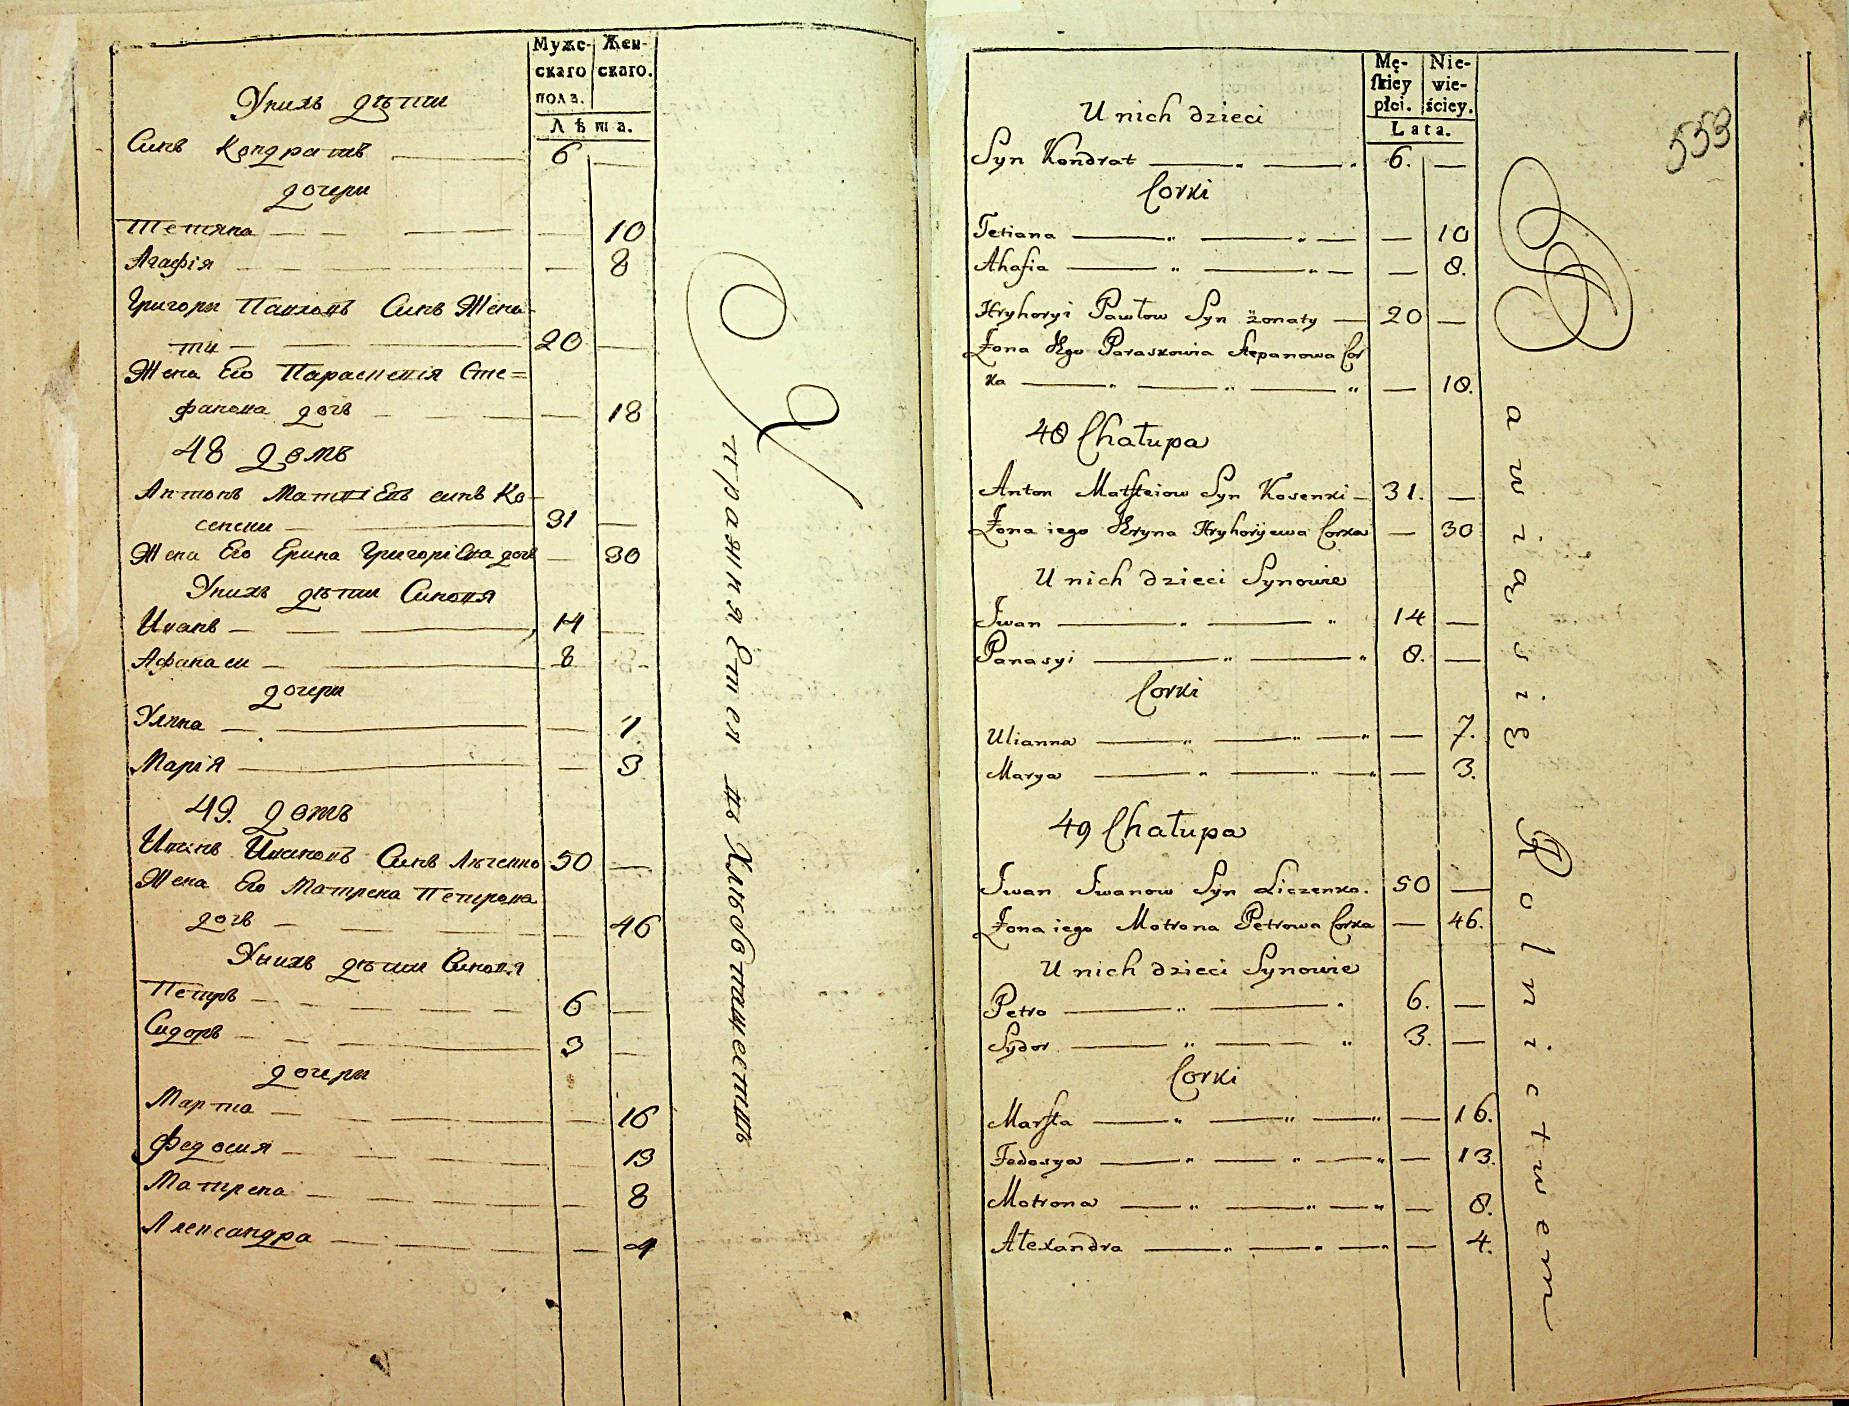 Муже-
скаго
пола.
Жен-
скаго.
Лѣта.
Унихъ дѣти
Синъ Кондратъ 6
дочери
Тетяна 10
Агафія 8
Григори Павловъ Синъ Жена-
ти 20
Жена Его Параскевія Сте=
фанова дочь 18
48 домъ
Антонъ Матвіевъ синъ Ко-
сенки 31
Жена Его Ерина Григоріева дочь 30
Унихъ дѣти Синовя
Иванъ 14
Афанаси 8
дочери
Уляна 7
Марія 3
49. домъ
Иванъ Ивановъ Синъ Лѣченко 50
Жена Его Матрена Петрова
дочь 46
Унихъ дѣти Синовя
Петръ 6
Сидоръ 3
дочери
Марта 16
Федосия 13
Матрена 8
Александра 4
Упражняются въ Хлѣбопашествѣ
Mę-
skiey
płci.
Nie-
wie-
ściey.
Lata.
553
U nich dzieci
Syn Kondrat 6.
Corki
Tetiana 10
Ahafia 8.
Hryhoryi Pawłow Syn żonaty 20
Żona Jego Paraskowia Stepanowa Cor
ka 18.
48 Chałupa
Anton Matfieiow Syn Kosenki 31.
Żona iego Jryna Hryhoryjewa Corka 30
U nich dzieci Synowie
Jwan 14
Panasyi 8.
Corki
Ulianna 7.
Marya 3.
49 Chałupa
Jwan Jwanow Syn Liczenko. 50
Żona iego Motrona Petrowa Corka 46.
U nich dzieci Synowie
Petro 6.
Sydor 3.
Corki
Marfta 16.
Fedosya 13.
Motrona 8.
Alexandra 4.
Bawią się Rolnictwem